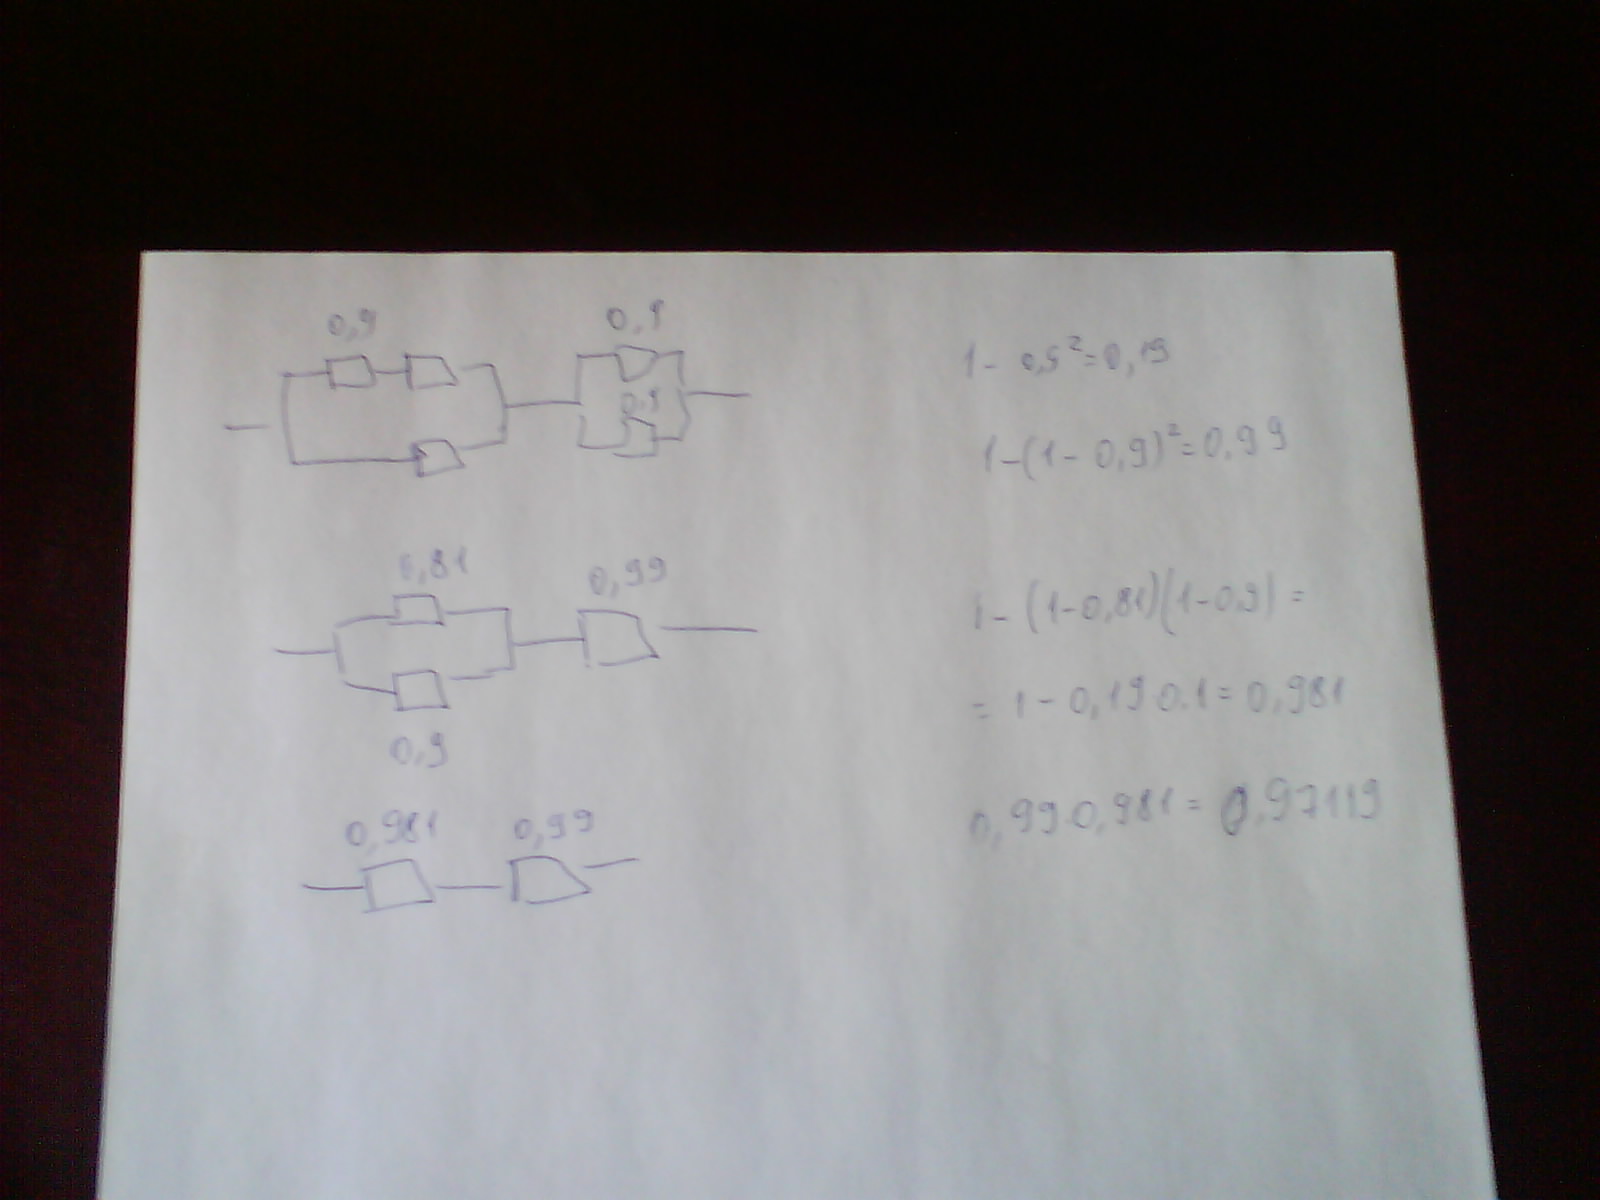 0,9 0,9
0,9
1 - 0,9² = 0,19
1-(1- 0,9)² = 0,99
0,81 0,99
0,9
1 - (1-0,81)(1-0,9) =
= 1 - 0,19 0.1 = 0,981
0,981 0,99
0,99.0,981 = 0,97119